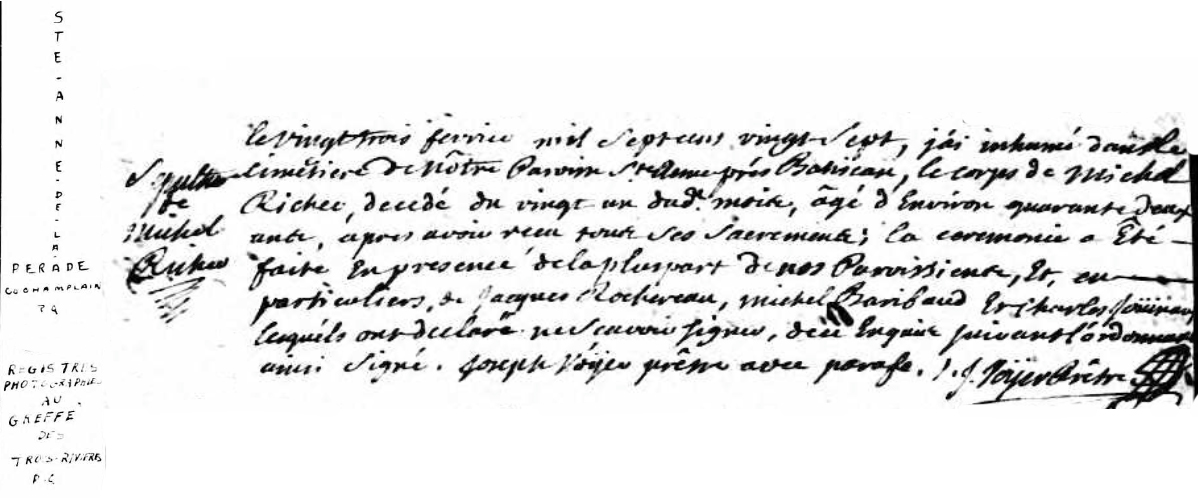 STE-ANNE-DE-LA-
PERADE
CO CHAMPLAIN
REGISTRES
PHOTOGRAPHIES
AU
GREFFE
DES
TROIS-RIVIERES
P.Q
Sepulture
de
Michel
Richer
le vingt trois fevrier mil Sept cens vingt Sept, j'ai inhumé dans le
cimetiere de nôtre Paroisse Ste Anne prés Batiscan, le corps de Michel
Richer, decedé du vingt un dud. mois, âgé d'Environ quarante deux
ans, apres avoir recu tous Ses Sacremens; la ceremonie a Été
faite En presence de la pluspart de nos Paroissiens, Et, en
particuliers, de Jacques Rochereau, michel Baribaud Et Charles
lesquels ont declaré ne Scavoir Signer, de ce Enquis suivant l'ordonnance
ainsi Signé. Joseph Voyer prêtre avec parafe. J. Voyer Prêtre